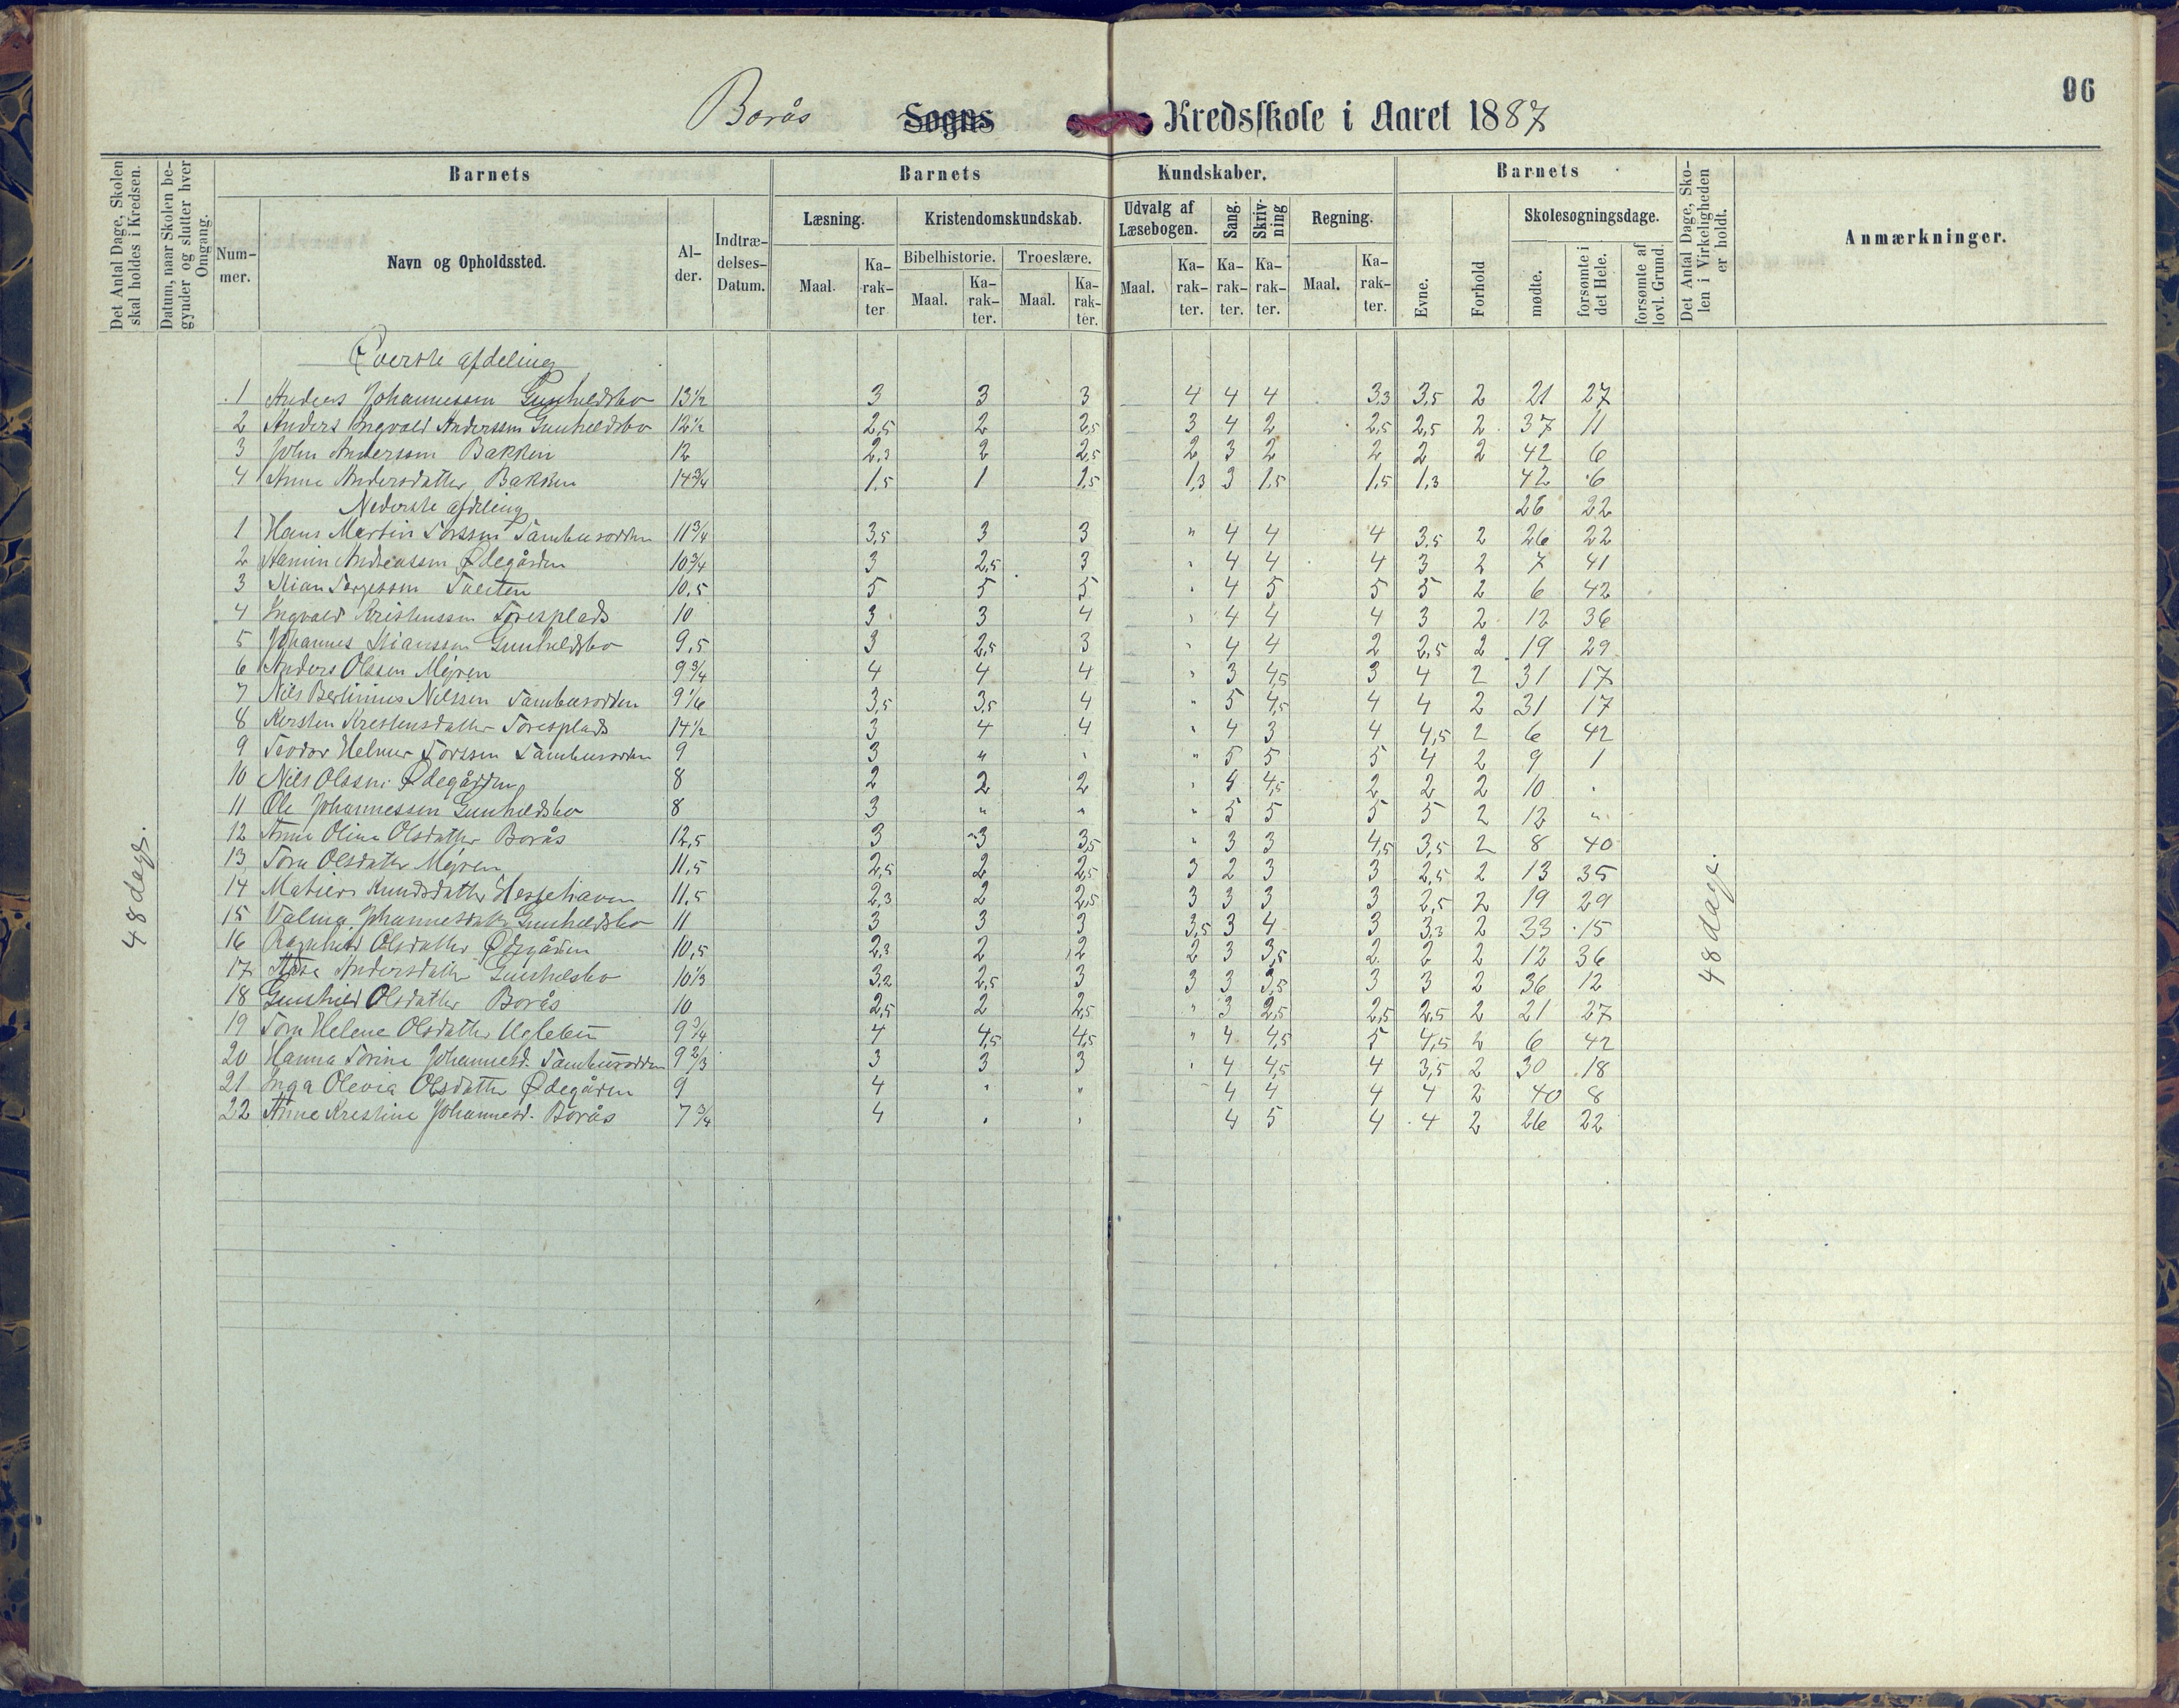 96
Borås Sogns Kredsskole i Aaret 1887
Det Antal Dage, Skolen skal holdes i Kredsen.
Datum, naar Skolen begynder og slutter hver Omgang.
Barnets
Barnets Kundskaber.
Barnets
Det Antal Dage, Skolen i Virkeligheden er holdt.
Anmærkninger.
Nummer.
Navn og Opholdssted.
Alder.
Indtrædelses-Datum.
Læsning.
Kristendomskundskab.
Udvalg af Læsebogen.
Sang.
Skrivning
Regning.
Evne.
Forhold
Skolesøgningsdage.
Bibelhistorie.
Troeslære.
Maal.
Karakter
Maal.
Karakter.
Maal.
Karakter.
Maal.
Karakter.
Karakter.
Karakter.
Maal.
Karakter.
mødte.
forsømte i det Hele.
forsømte af lovl. Grund.
48 dage.
48 dage.
Øverste afdeling
1 Anders Johannessen Gunhildsbo 13½ 3 3 3 4 4 4 3,3 3,5 2 21 27
2 Anders Ingvald Anderssen Gunhildsbo 12½ 2,5 2 2,5 3 4 2 2,5 2,5 2 37 11
3 John Anderssen Bakken 12 2,3 2 2,5 2 3 2 2 2 2 42 6
4 Anne Andersdatter Bakken 14¾ 1,5 1 1,5 1,3 3 1,5 1,5 1,3 42 6
Nederste afdeling 26 22
1 Hans Martin Torssen 11¾ 3,5 3 3 " 4 4 4 3,5 2 26 22
2 Andreassen Ødegården 10¾ 3 2,5 3 " 4 4 4 3 2 7 41
3 Stian Tarjessen Tveiten 10,5 5 5 5 " 4 5 5 5 2 6 42
4 Ingvald Kristenssen Toresplads 10 3 3 4 " 4 4 4 3 2 12 36
5 Johannes Stianssen Gunhildsbo 9,5 3 2,5 3 " 4 4 2 2,5 2 19 29
6 Anders Olssen Mýren 9¾ 4 4 4 " 3 4,5 3 4 2 31 17
7 Nils Bertinius Nilssen 9 1/6 3,5 3,5 4 " 5 4,5 4 4 2 31 17
8 Kersten Krestensdatter Toresplads 14½ 3 4 4 " 4 3 4 4,5 2 6 42
9 Teodor Helmer Torssen 9 3 " " " 5 5 5 4 2 9 1
10 Nils Olssen Ødegården 8 2 2 2 " 4 4,5 2 2 2 10 "
11 Ole Johannessen Gunhildsbo 8 3 " " " 5 5 5 5 2 12 "
12 Anne Oline Olsdatter Borås 12,5 3 3 3,5 " 3 3 4,5 3,5 2 8 40
13 Tora Olsdatter Mýren 11,5 2,5 2 2,5 3 2 3 3 2,5 2 13 35
14 Knudsdatter 11,5 2,3 2 2,5 3 3 3 3 2,5 2 19 29
15 Valma Johannesdatter Gunhildsbo 11 3 3 3 3,5 3 4 3 3,3 2 33 15
16 Ragnhild Olsdatter Ødegården 10,5 2,3 2 2 2 3 3,5 2 2 2 12 36
17 Andersdatter Gunhildsbo 10⅓ 3,2 2,5 3 3 3 3,5 3 3 2 36 12
18 Gunhild Olsdatter Borås 10 2,5 2 2,5 " 3 2,5 2,5 2,5 2 21 27
19 Tora Helene Olsdatter 9¾ 4 4,5 4,5 " 4 4,5 5 4,5 2 6 42
20 Hanna Torine Johannesd. 9⅔ 3 3 3 " 4 4,5 4 3,5 2 30 18
21 Inga Olevia Olsdatter Ødegården 9 4 " " 4 4 4 4 2 40 8
22 Anne Kristine Johannesd. Borås 7¾ 4 " " 4 5 4 4 2 26 22